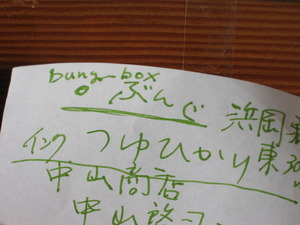 bung box
ぶんぐ 浜岡
インク つゆひかり 東
中山商店
中山